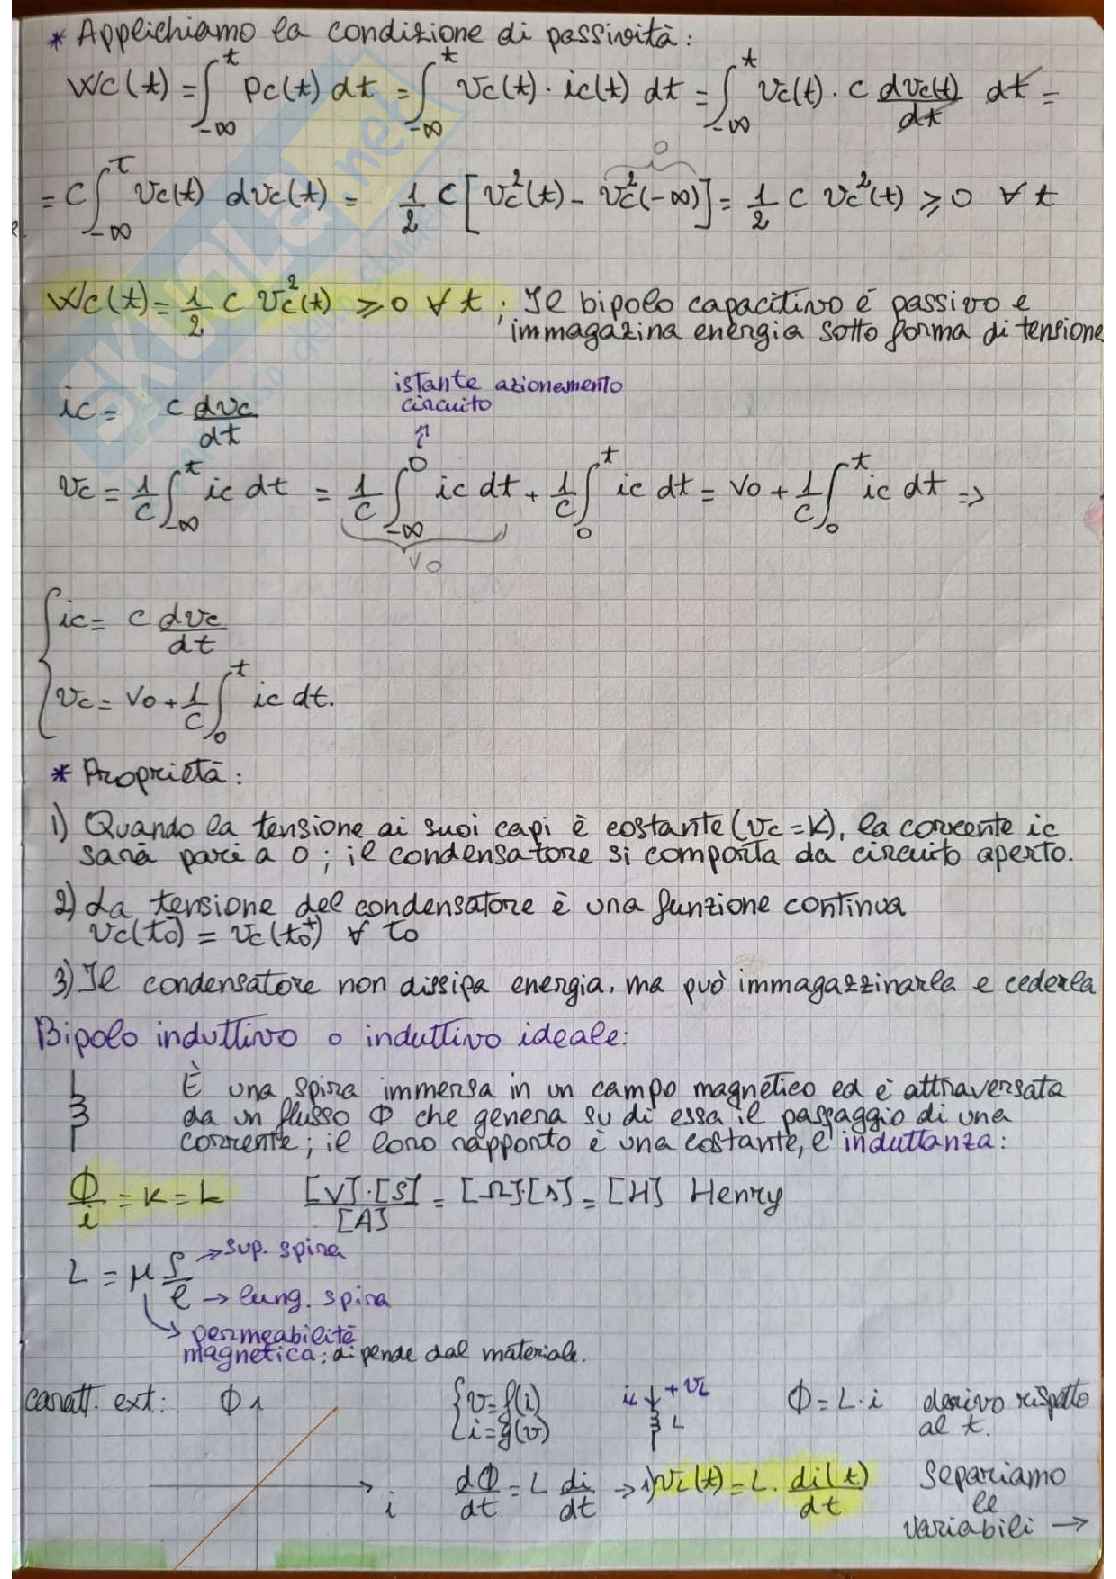 * Applichiamo la condizione di passività:
Wc(t) = ∫_{-∞}^{t} pc(t) dt = ∫_{-∞}^{t} vc(t) · ic(t) dt = ∫_{-∞}^{t} vc(t) · C dvc(t)/dt dt =
0
= C ∫_{-∞}^{t} vc(t) dvc(t) = 1/2 C [vc²(t) - vc²(-∞)] = 1/2 C vc²(t) ⩾ 0 ∀ t
Wc(t) = 1/2 C vc²(t) ⩾ 0 ∀ t ; Il bipolo capacitivo è passivo e
immagazina energia sotto forma di tensione
istante azionamento
circuito
ic = C dvc/dt
vc = 1/C ∫_{-∞}^{t} ic dt = 1/C ∫_{-∞}^{0} ic dt + 1/C ∫_{0}^{t} ic dt = Vo + 1/C ∫_{0}^{t} ic dt ⇒
Vo
ic = C dvc/dt
vc = Vo + 1/C ∫_{0}^{t} ic dt.
* Proprietà:
1) Quando la tensione ai suoi capi è costante (vc = K), la corrente ic
sarà pari a 0 ; il condensatore si comporta da circuito aperto.
2) La tensione del condensatore è una funzione continua
vc(to⁻) = vc(to⁺) ∀ to
3) Il condensatore non dissipa energia, ma può immagazzinarla e cederla
Bipolo induttivo o induttivo ideale:
È una spira immersa in un campo magnetico ed è attraversata
da un flusso Φ che genera su di essa il passaggio di una
corrente; il loro rapporto è una costante, l'induttanza:
Φ/i = K = L [V]·[S]/[A] = [Ω]·[s] = [H] Henry
L = μ S/l → sup. spira
→ lung. spira
→ permeabilità
magnetica: dipende dal materiale.
caratt. ext: Φ { v = f(i) iL + vL Φ = L · i derivo rispetto
i = g(v) L al t.
i dΦ/dt = L di/dt → 1) vL(t) = L · di(t)/dt Separiamo
le
variabili →
SKUOLA.net